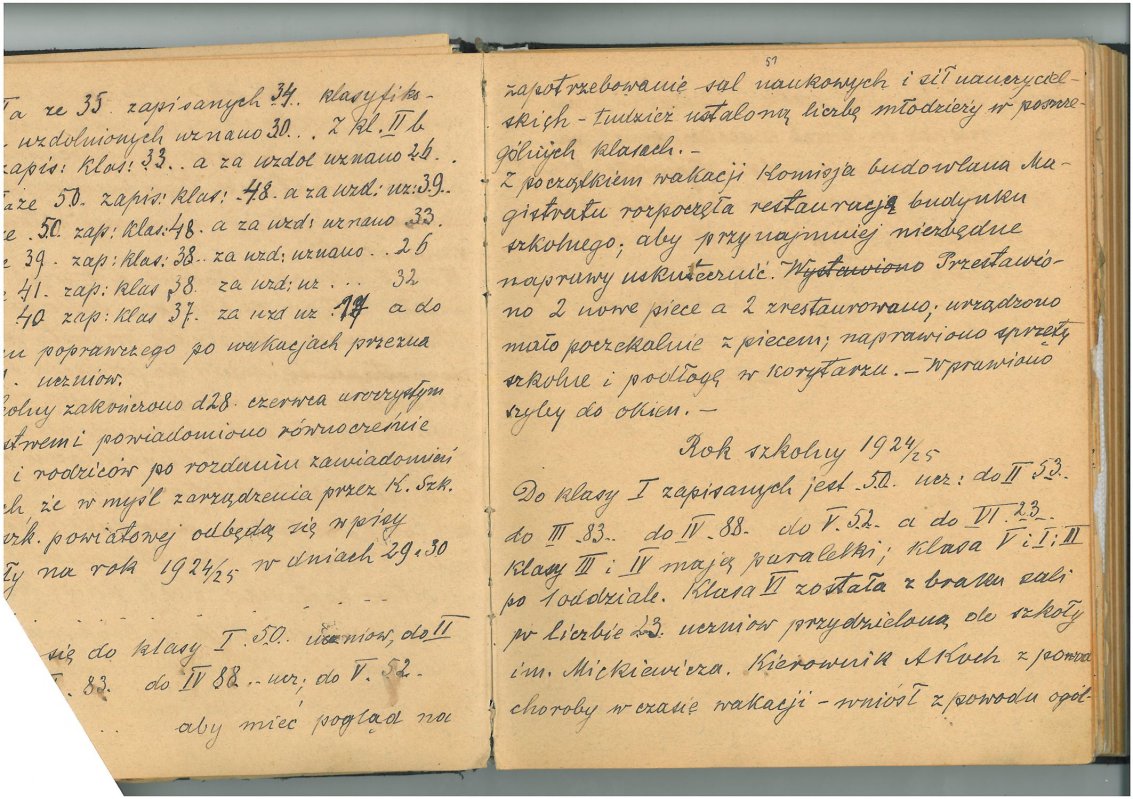 a ze 35 zapisanych 34.. klasyfiko-
uzdolnionych uznano 30... Z kl. II b
zapis: klas: 33.. a za uzdol uznano 26..
ze 50. zapis: klas: .48. a za uzd: uz: 39..
.50. zap: klas: 48. a za uzd: uznano 33.
39. zap: klas: 38.. za uzd: uznano .. 26
41. zap: klas 38. za uzd: uz ... 32
.40 zap: klas 37. za uzd uz . a do
poprawczego po wakacjach przezna
uczniów.
zakończono d 28. czerwca uroczystym
i powiadomiono równocześnie
i rodziców po rozdaniu zawiadomień
że w myśl zarządzenia przez K. Szk.
powiatowej odbędą się wpisy
na rok 1924/25 w dniach 29 i 30
się do klasy I. 50. uczniów, do II
83. do IV 88 .. ucz; do V. 52.
aby mieć pogląd na
51
zapotrzebowanie sal naukowych i sił nauczyciel-
skich - tudzież ustaloną liczbę młodzieży w poszcze-
gólnych klasach. -
Z początkiem wakacji Komisja budowlana Ma-
gistratu rozpoczęła restaurację budynku
szkolnego; aby przynajmniej niezbędne
naprawy uskutecznić. Wystawiono Przestawio-
no 2 nowe piece a 2 zrestaurowano; urządzono
mało poczekalnie z piecem; naprawiono sprzęty
szkolne i podłogę w korytarzu. - Wprawiono
szyby do okien. -
Rok szkolny 1924/25
Do klasy I zapisanych jest .50. ucz: do II 53.
do III .83.. do IV .88. do V. 52. a do VI .23..
klasy III i IV mają paralelki; klasa V i I i II
po 1 oddziale. Klasa VI została z braku sali
w liczbie 23. uczniów przydzieloną do szkoły
im. Mickiewicza. Kierownik AKoch z powodu
choroby w czasie wakacji - wniósł z powodu ogól-